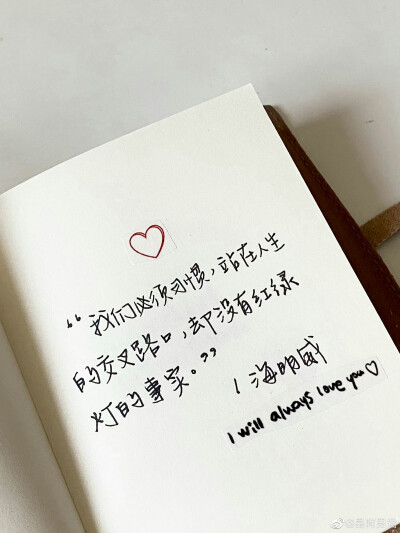 “我们必须习惯,站在人生
的交叉路口,却没有红绿
灯的事实。”
/海明威
I will always love you♡